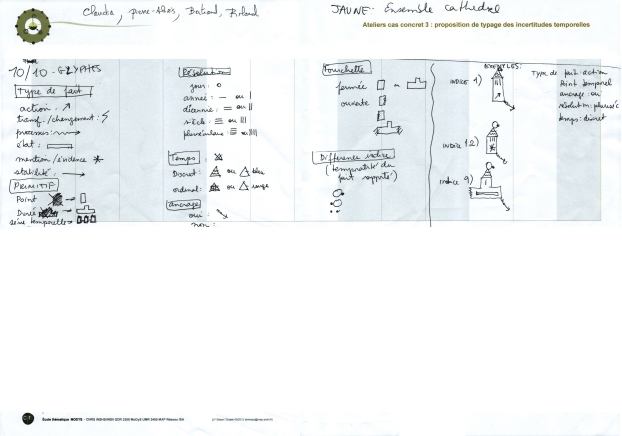 Claudia, Pierre-Alois, Bertrand, Roland
JAUNE - Ensemble cathedral
Ateliers cas concret 3 : proposition de typage des incertitudes temporelles
10/10 - GLYPHES
Type de fait
action :
transf./changement :
processus :
état :
mention/évidence
stabilité :
PRIMITIF
Point
Durée
série temporelle
Résolution
jour : o
année : — ou |
décennie : = ou ||
siècle : ≡ ou |||
pluriséculaire : ou ||||
Temps :
Discret : ou bleu
ordinal : ou rouge
ancrage
oui :
non :
Fourchette
fermée ou
ouverte
Différence indice
(temporalité du
fait rapporté)
EXEMPLES :
INDICE 1)
indice 12)
indice 9)
Type de fait : action
Point temporel
ancrage : oui
résolution : plurisec
temps : discret
École thématique MODYS